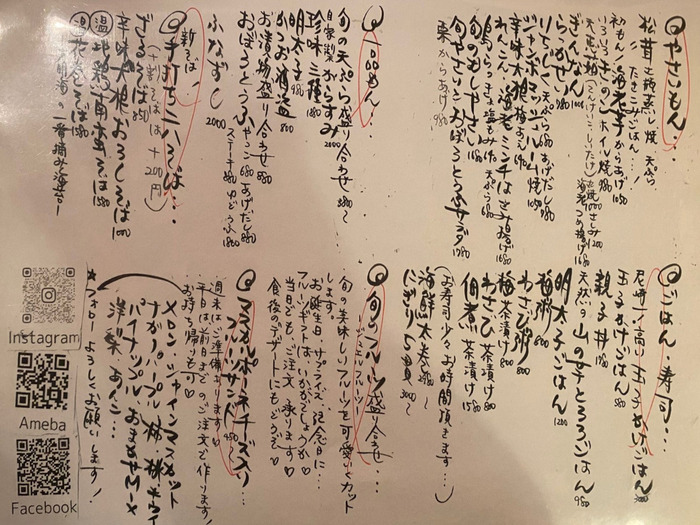 やさいもん…
松茸 土瓶蒸し 焼 天ぷら
たきこみごはん…！
初もん！海老芋からあげ 1050
いろいろきのこホイル焼 980
ぎんなん 1000
らっかせい 980
れんこん 海老ミンチはさみ揚げ 1680
旬のむしやさい 1180
旬やさいとおぼろとうふサラダ 1780
栗からあげ 980
一品もん…
旬の天ぷら盛り合わせ 3680〜
自家製からすみ 2000
珍味三種 1580
明太子 980
かつお酒盗 800
お漬物盛り合わせ 880
おぼろとうふ やっこ 680 あげだし 880
ステーキ 980 ゆどうふ 1860
ふなずし 2000
新そば！
手打ち二八そば…
（十割そばは＋200円）
ざるそば 850
辛味大根おろしそば 1100
温 地鶏南蛮そば 1580
温 花巻そば 1580
ごはん 寿司…
尼崎一高い玉子かけごはん 3000
玉子かけごはん 580
親子丼 1780
天然の山の芋とろろごはん 980
明太子ごはん 1200
梅粥 800
わさび粥 800
梅茶漬け 800
わさび茶漬け 800
佃煮茶漬け 1580
（お寿司少々お時間頂きます…）
海鮮太巻 2980〜
にぎり5貫 3000〜
旬のフルーツ盛り合せ…
〜ジュエルフルーツ〜
旬の美味しいフルーツを可愛くカット
します。
お誕生日、サプライズ、記念日に…
フルーツギフトはいかがでしょうか♡
当日でもご注文承ります♡
食後のデザートにもどうぞ♡
マスカルポーネチーズ入り…
フルーツサンド 950〜
週末はご準備あります！
平日は前日までのご注文で作ります！
お持ち帰りも可♡
メロン・シャインマスカット
オールパープル 柿・桃・キウイ
パイナップル おまかせMIX
洋梨 あんこ…
★フォローよろしくお願いします！
Instagram
Ameba
Facebook